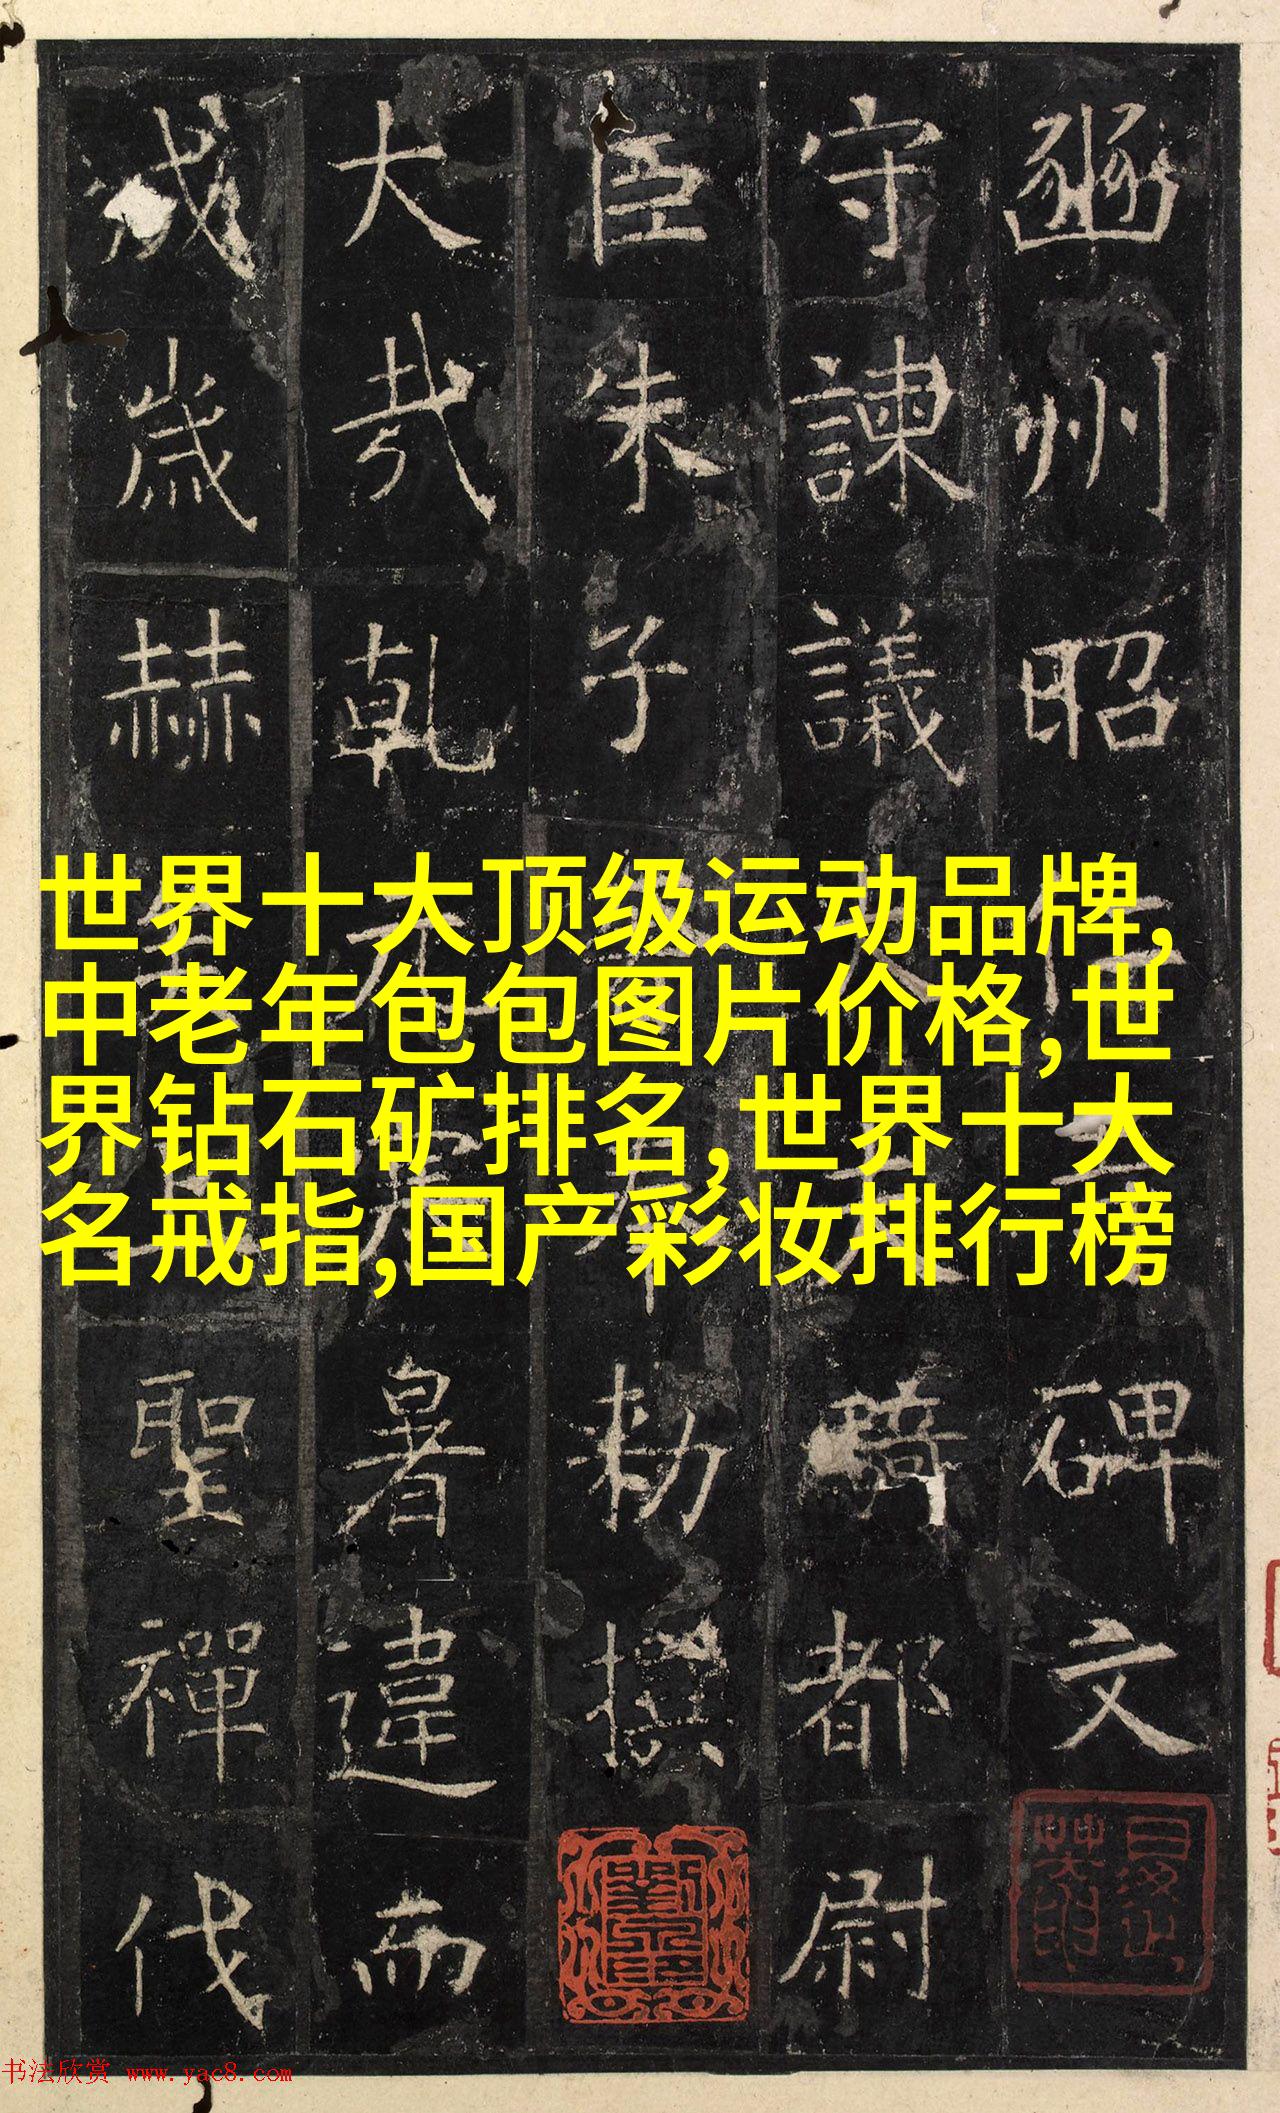 豳州昭仁碑文
守諫議大夫騎都尉
臣朱子奉勑撰
大哉乾元寒暑違而
成歲赫聖禪代
世界十大顶级运动品牌,
中老年包包图片价格,世
界钻石矿排名,世界十大
名戒指,国产彩妆排行榜
书法欣赏 www.yac8.com